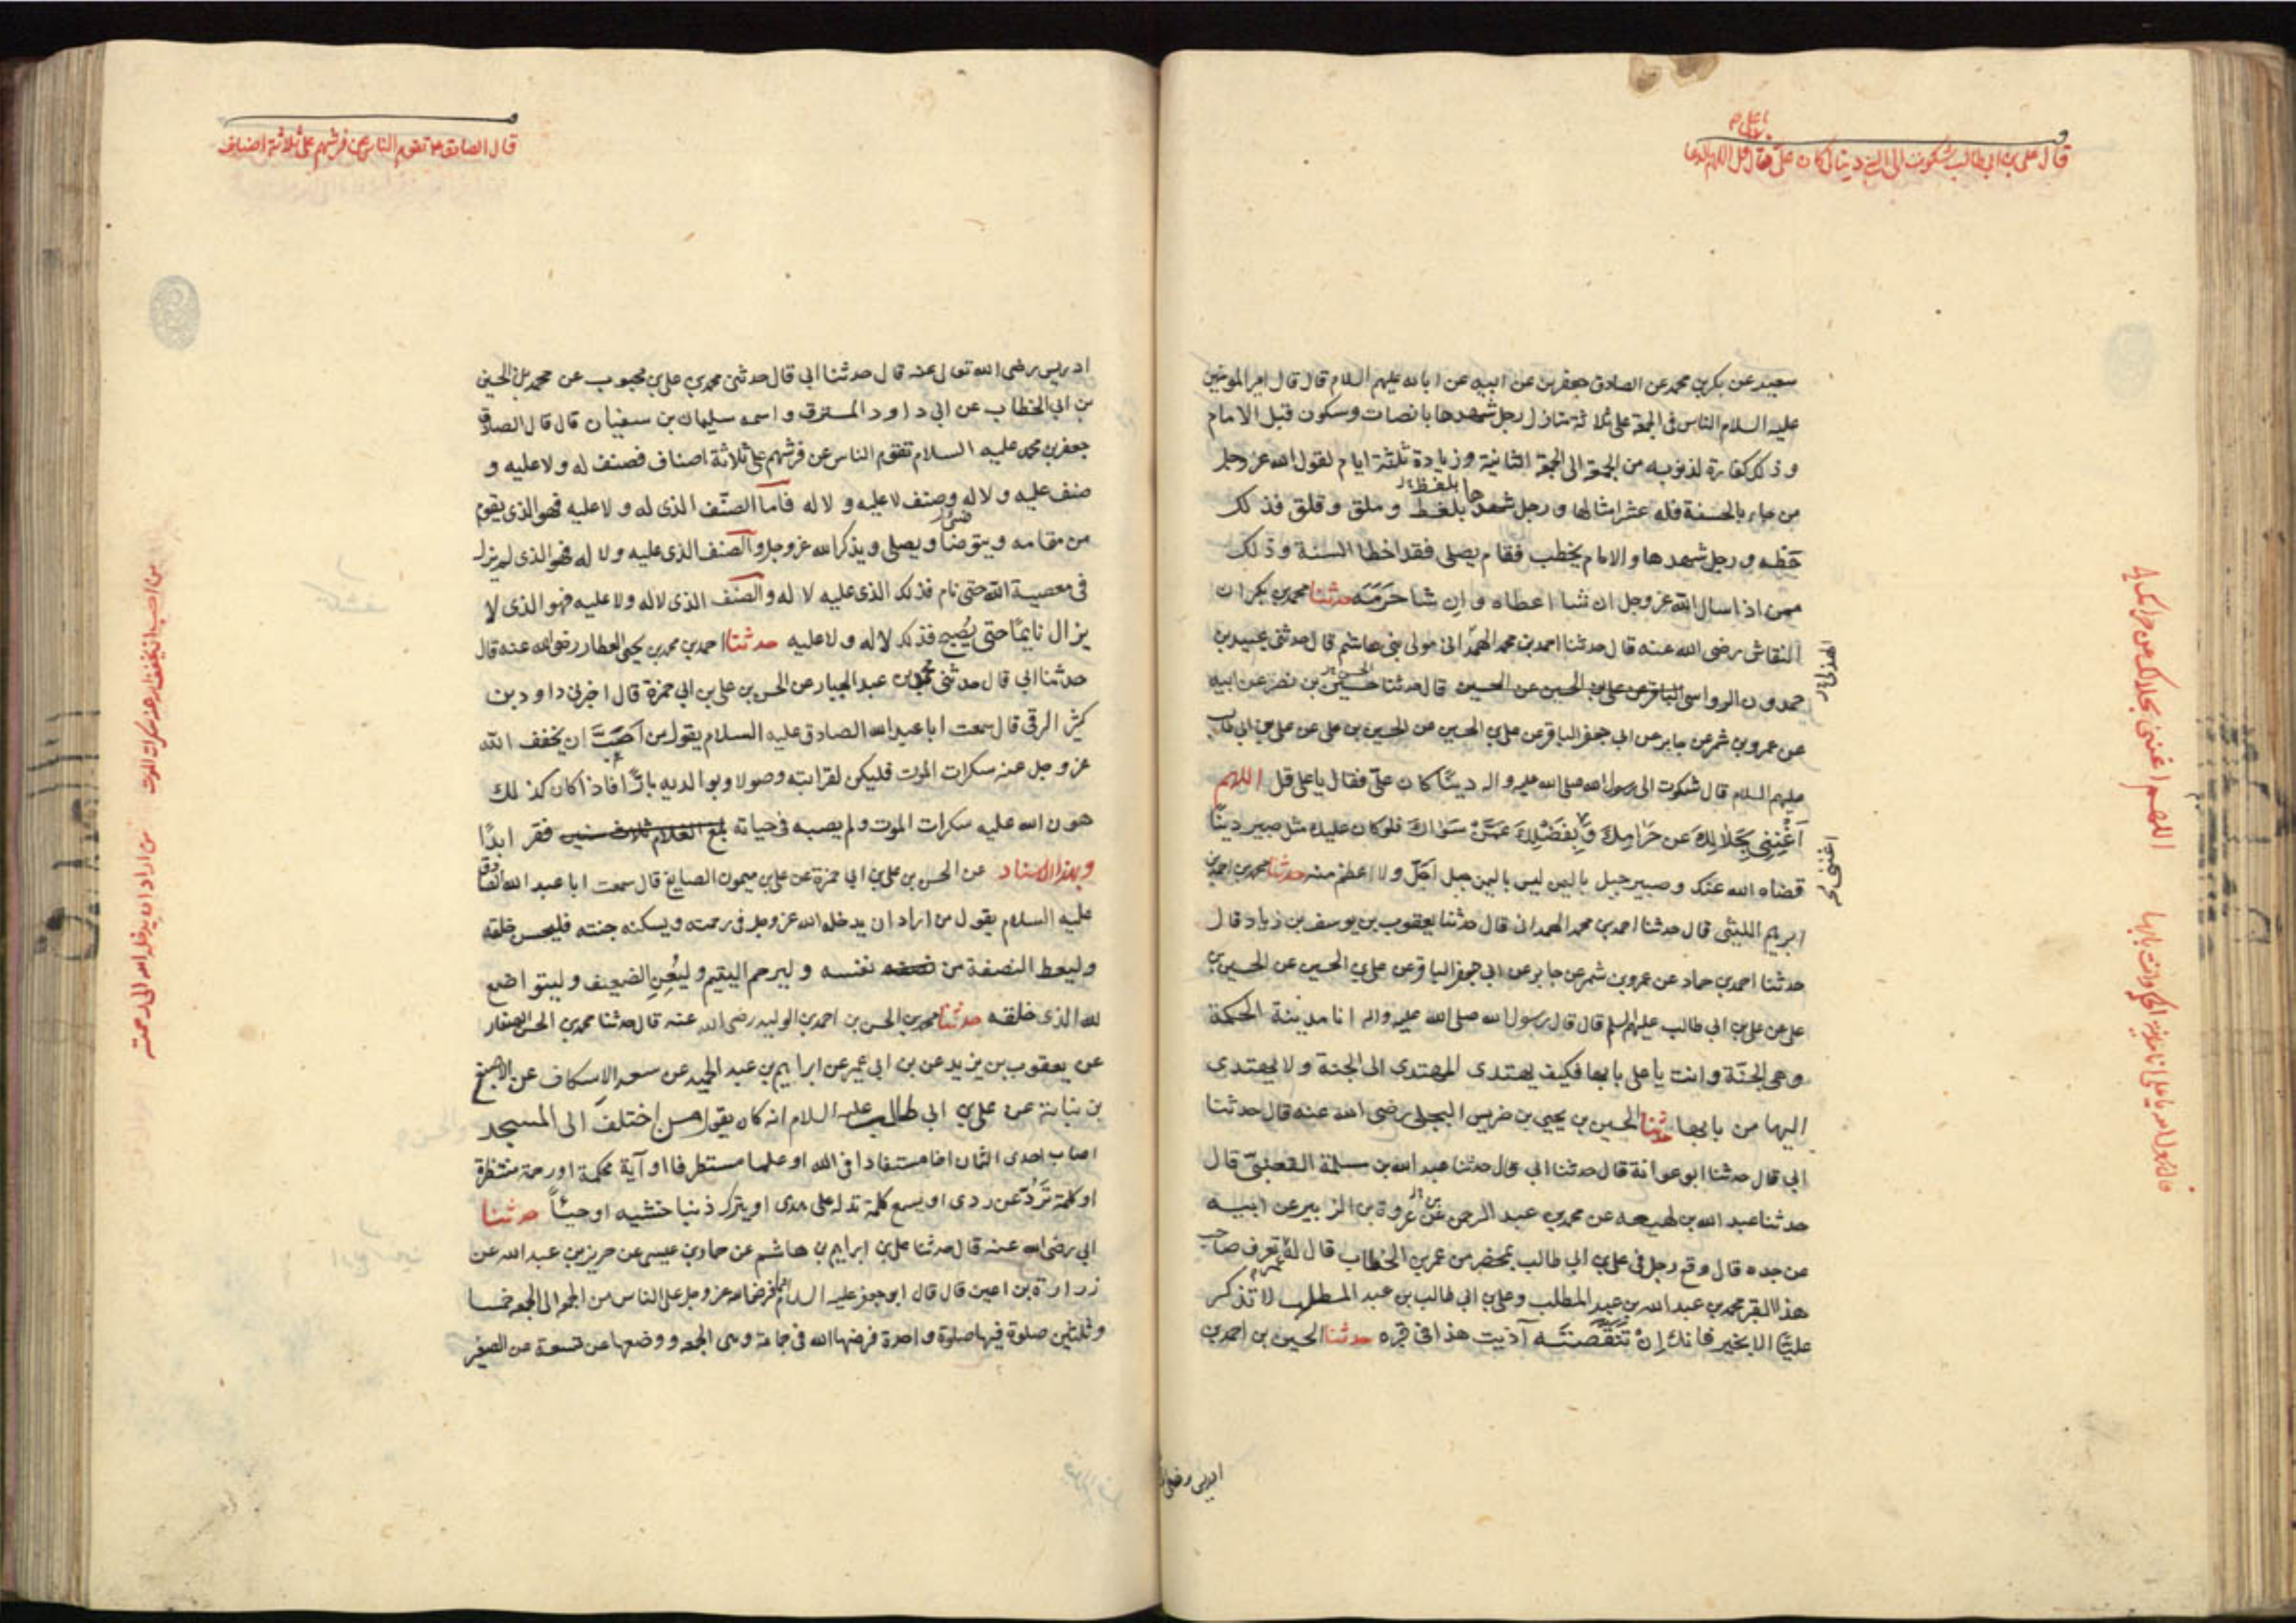 قال علي بن ابي طالب شكوت الى النبي دينا كان علي فقال قل اللهم
سعيد عن بكر بن محمد عن الصادق جعفر بن عن ابيه عن ابائه عليهم السلام قال قال امير المومنين
عليه السلام الناس في الجمعة على ثلاثة منازل رجل شهدها بانصات وسكون قبل الامام
وذلك كفارة لذنوبه من الجمعة الى الجمعة الثانية وزيادة ثلثة ايام لقول الله عز وجل
من جاء بالحسنة فله عشر امثالها ورجل شهدها بلغط وملق وقلق فذلك
حظه ورجل شهدها والامام يخطب فقام يصلي فقد اخطا السنة وذلك
ممن اذا سال الله عز وجل ان شا اعطاه وان شا حرمه حدثنا محمد بن بكران
النقاش رضي الله عنه قال حدثنا احمد بن محمد الهمداني مولى بني هاشم قال حدثني عبيد بن
حمدون الرواسي قال حدثنا حسين بن نصر عن ابيه
عن عمرو بن شمر عن جابر عن ابي جعفر الباقر عن علي بن الحسين عن الحسين بن علي عن علي بن ابي طالب
عليهم السلام قال شكوت الى رسول الله صلى الله عليه واله دينا كان علي فقال يا علي قل اللهم
اغنني بحلالك عن حرامك وبفضلك عمن سواك فلو كان عليك مثل صبير دينا
قضاه الله عنك وصبير جبل باليمن ليس باليمن جبل اجل ولا اعظم منه حدثنا محمد بن احمد بن
ابرهيم الليثي قال حدثنا احمد بن محمد الهمداني قال حدثنا يعقوب بن يوسف بن زياد قال
حدثنا احمد بن حماد عن عمرو بن شمر عن جابر عن ابي جعفر الباقر عن علي بن الحسين عن الحسين بن
علي عن علي بن ابي طالب عليهم السلم قال قال رسول الله صلى الله عليه واله انا مدينة الحكمة
وهي الجنة وانت يا علي بابها فكيف يهتدي المهتدي الى الجنة ولا يهتدي
اليها من بابها حدثنا الحسين بن يحيي بن ضريس البجلي رضي الله عنه قال حدثنا
ابي قال حدثنا ابو عوانة قال حدثنا ابي قال حدثنا عبد الله بن مسلمة القعنبي قال
حدثنا عبد الله بن لهيعه عن محمد بن عبد الرحمن بن عروة بن الزبير عن ابيه
عن جده قال وقع رجل في علي بن ابي طالب بمحضر من عمر بن الخطاب قال له عمر تعرف صاحب
هذا القبر محمد بن عبد الله بن عبد المطلب وعلي بن ابي طالب بن عبد المطلب لا تذكر
عليا الا بخير فانك ان تنقصته آذيت هذا في قبره حدثنا الحسين بن احمد بن
الهذلي
اغنني
اللهم اغنني بحلالك عن حرامك
ادريس رضي
قال الصادق ع تقوم الناس عن فرشهم على ثلاثة اصناف
ادريس رضي الله تعالى عنه قال حدثنا ابي قال حدثني محمد بن علي بن محبوب عن محمد بن الحسين
بن ابي الخطاب عن ابي داود المسترق واسمه سليمان بن سفيان قال قال الصادق
جعفر بن محمد عليه السلام تقوم الناس عن فرشهم على ثلاثة اصناف فصنف له ولا عليه و
صنف عليه ولا له وصنف لا عليه ولا له فاما الصنف الذي له ولا عليه فهو الذي يقوم
من مقامه ويتوضا ويصلي ويذكر الله عز وجل والصنف الذي عليه ولا له فهو الذي لم يزل
في معصية الله حتى نام فذلك الذي عليه لا له والصنف الذي لا له ولا عليه فهو الذي لا
يزال نايما حتى يصبح فذلك لا له ولا عليه حدثنا احمد بن محمد بن يحيى العطار رضي الله عنه قال
حدثنا ابي قال حدثني محمد بن عبد الجبار عن الحسن بن علي بن ابي حمزة قال اخبرني داود بن
كثير الرقي قال سمعت ابا عبد الله الصادق عليه السلام يقول من احب ان يخفف الله
عز وجل عنه سكرات الموت فليكن لقرابته وصولا وبوالديه بارا فاذا كان كذلك
هون الله عليه سكرات الموت ولم يصبه في حياته فقر ابدا
وبهذا الاسناد عن الحسن بن علي بن ابي حمزة عن علي بن ميمون الصايغ قال سمعت ابا عبد الله الصادق
عليه السلام يقول من اراد ان يدخله الله عز وجل في رحمته ويسكنه جنته فليحسن خلقه
وليعط النصفة من نفسه وليرحم اليتيم وليعن الضعيف وليتواضع
لله الذي خلقه حدثنا محمد بن الحسن بن احمد بن الوليد رضي الله عنه قال حدثنا محمد بن الحسن الصفار
عن يعقوب بن يزيد عن بن ابي عمير عن ابراهيم بن عبد الحميد عن سعد الاسكاف عن الاصبغ
بن نباتة عن علي بن ابي طالب عليه السلام انه كان يقول من اختلف الى المسجد
اصاب احدى الثمان اخا مستفادا في الله او علما مستطرفا او آية محكمة او رحمة منتظرة
او كلمة ترده عن ردى او يسمع كلمة تدله على هدى او يترك ذنبا خشيه او حيا حدثنا
ابي رضي الله عنه قال حدثنا علي بن ابراهيم بن هاشم عن حماد بن عيسى عن حريز بن عبد الله عن
زرارة بن اعين قال قال ابو جعفر عليه السلام انما فرض الله عز وجل على الناس من الجمعة الى الجمعة خمسا
وثلثين صلوة فيها صلوة واحدة فرضها الله في جماعة وهي الجمعه ووضعها عن تسعة عن الصغير
من احب ان يخفف الله عنه سكرات الموت
من اراد ان يدخله الله الى رحمته